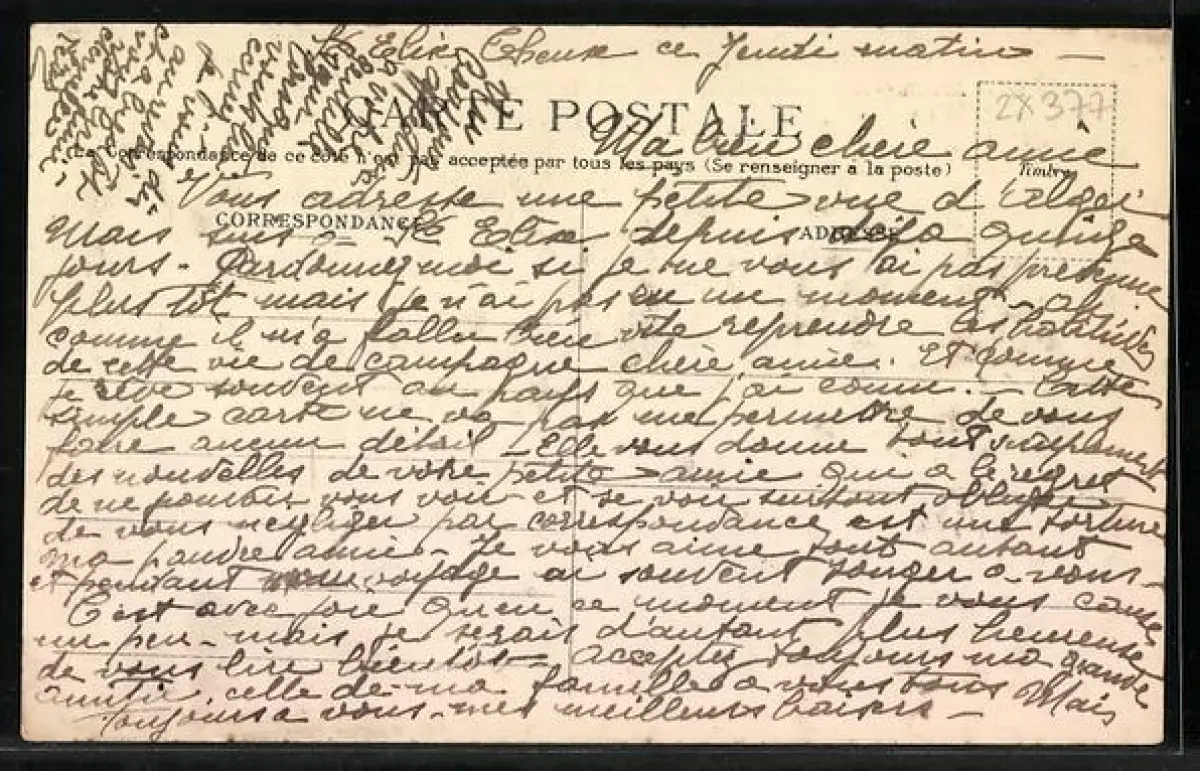 St Elix Theux ce Jeudi matin —
CARTE POSTALE
2X 377
Ma bien chère amie
La Correspondance de ce côté n'est pas acceptée par tous les pays (Se renseigner à la poste)
Timbre
Vous adresse une petite vue d'Alger
CORRESPONDANCE
ADRESSE
Mais suis à St Elix depuis déjà quinze
jours - Pardonnez moi si je ne vous ai pas prévenue
plus tôt mais je n'ai pas eu un moment -
comme il m'a fallu bien vite reprendre les habitudes
de cette vie de campagne chère amie. Et comme
je rêve souvent au pays que j'ai connu. - Cette
simple carte ne va pas me permettre de vous
faire aucun détail - Elle vous donne tout simplement
des nouvelles de votre petite amie qui a le regret
de ne pouvoir vous voir - et se voir surtout obligée
de vous négliger par correspondance est une torture
ma pauvre amie - Je vous aime tout autant
et pendant voyage ai souvent songer à vous -
C'est avec joie qu'en ce moment je vous cause
un peu - mais je serais d'autant plus heureuse
de vous lire bientôt - acceptez toujours ma grande
amitié, celle de ma famille à vous tous Mais
toujours à vous - mes meilleurs baisers -